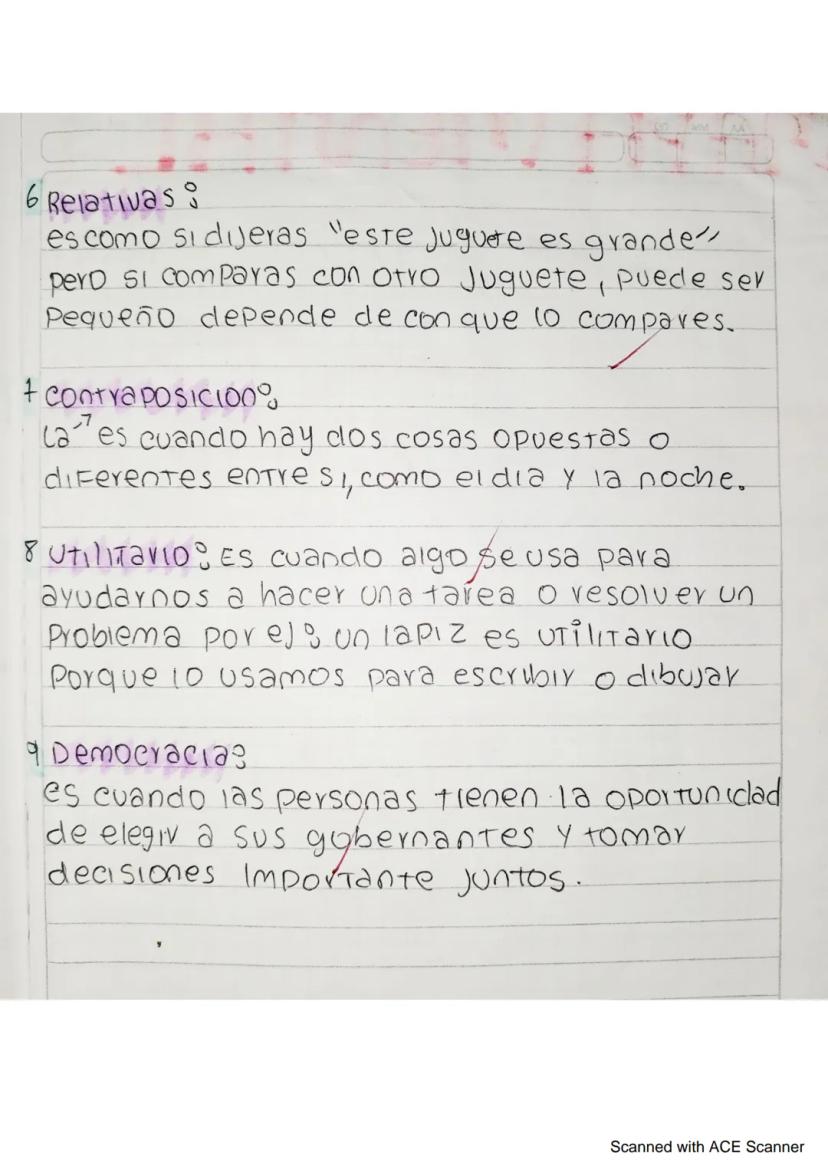 6 Relativas:
es como si dijeras "este juguete es grande"
pero si comparas con otro juguete, puede ser
pequeño depende de con que lo compares.
7 Contraposicion:
La → es cuando hay dos cosas opuestas o
diferentes entre si, como el dia y la noche.
8 Utilitario: Es cuando algo se usa para
ayudarnos a hacer una tarea o resolver un
problema por ej: un lapiz es utilitario
porque lo usamos para escribir o dibujar
9 Democracia:
es cuando las personas tienen la oportunidad
de elegir a sus gobernantes y tomar
decisiones importante juntos.
Scanned with ACE Scanner